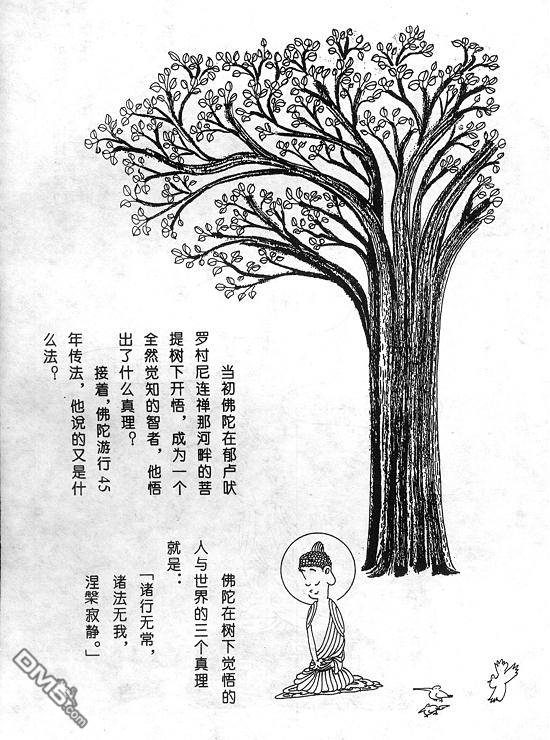 当初佛陀在郁卢吠
罗村尼连禅那河畔的菩
提树下开悟，成为一个
全然觉知的智者，他悟
出了什么真理？
接着，佛陀游行45
年传法，他说的又是什
么法？
佛陀在树下觉悟的
人与世界的三个真理
就是：
「诸行无常，
诸法无我，
涅槃寂静。」
DM5.com